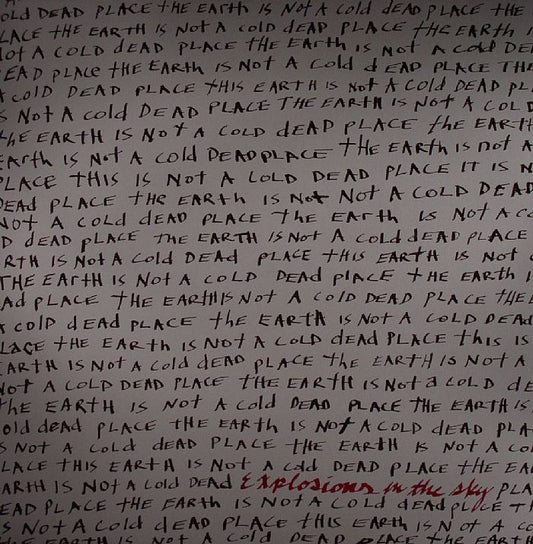 old DEAD PLACE THE EARth IS Not A Cold DEAD PLACE THE
LACE tHE EARTH IS Not A Cold dEAD PLACE tHE EARTH
Not A COLD dEAD PLACE THE EARth is Not A Cold DE
EAD PLACE THE EARth IS Not A Cold dEAD PLACE THE
A cold DEAD PLACE tHIS EARTH is Not A Cold DEAD PL
S Not A Cold DEAD PLACE THE EARTH IS Not A COLD
tHE EARTH IS NOT A COLD dEAD PLACE tHE EARTH
EARth IS Not A Cold DEADPLACE tHE EARth is not A
PLACE THIS IS Not A COLD DEAD PLACE IT IS N
DEAd PLACE tHE EARTH IS Not Not A COLD DEAD
Not A Cold dEAD PLACE the EARth is Not A CO
D dEAD PLACE THE EARTH IS Not A Cold dEAD PLACE
RTH IS Not A Cold DEAd PLACE tHIS EARTH IS Not
THE EARtH IS Not A ColD DEAd PLACE tHE EARTH I
Ad PLACE tHE EARtHIS Not A Cold DEAD PLACE tHE
A Cold dEAd PLACE the EARTH IS Not A COLD DEAd
LACE tHE EARtH IS Not A Cold DEAD PLACE this is
EARTH IS Not A Cold dEAD PLACE tHE EARTH IS Not A
Not A COLD DEAD PLACE THE EARTH is Not a COLD dE
tHE EARTH IS Not A Cold DEAD PLACE tHE EARTH IS
old dEAd PLACE tHE EARtH IS Not A Cold DEAD PLA
S Not A Cold dEAD PLACE tHE EARtH IS Not A Co
LACE tHIS EARTH IS Not A Cold DEAD PLACE tHE EA
ARtH IS Not A Cold DEAd Explosions in the sky PLA
EAD PLACE tHE EARth IS Not A Cold dEAdPLACE T
S Not A Cold DEAD PLACE tHIS EARTH IS Not A Co
THE EARTH IS Not A Cold DEAD PLACE tHE EARTH